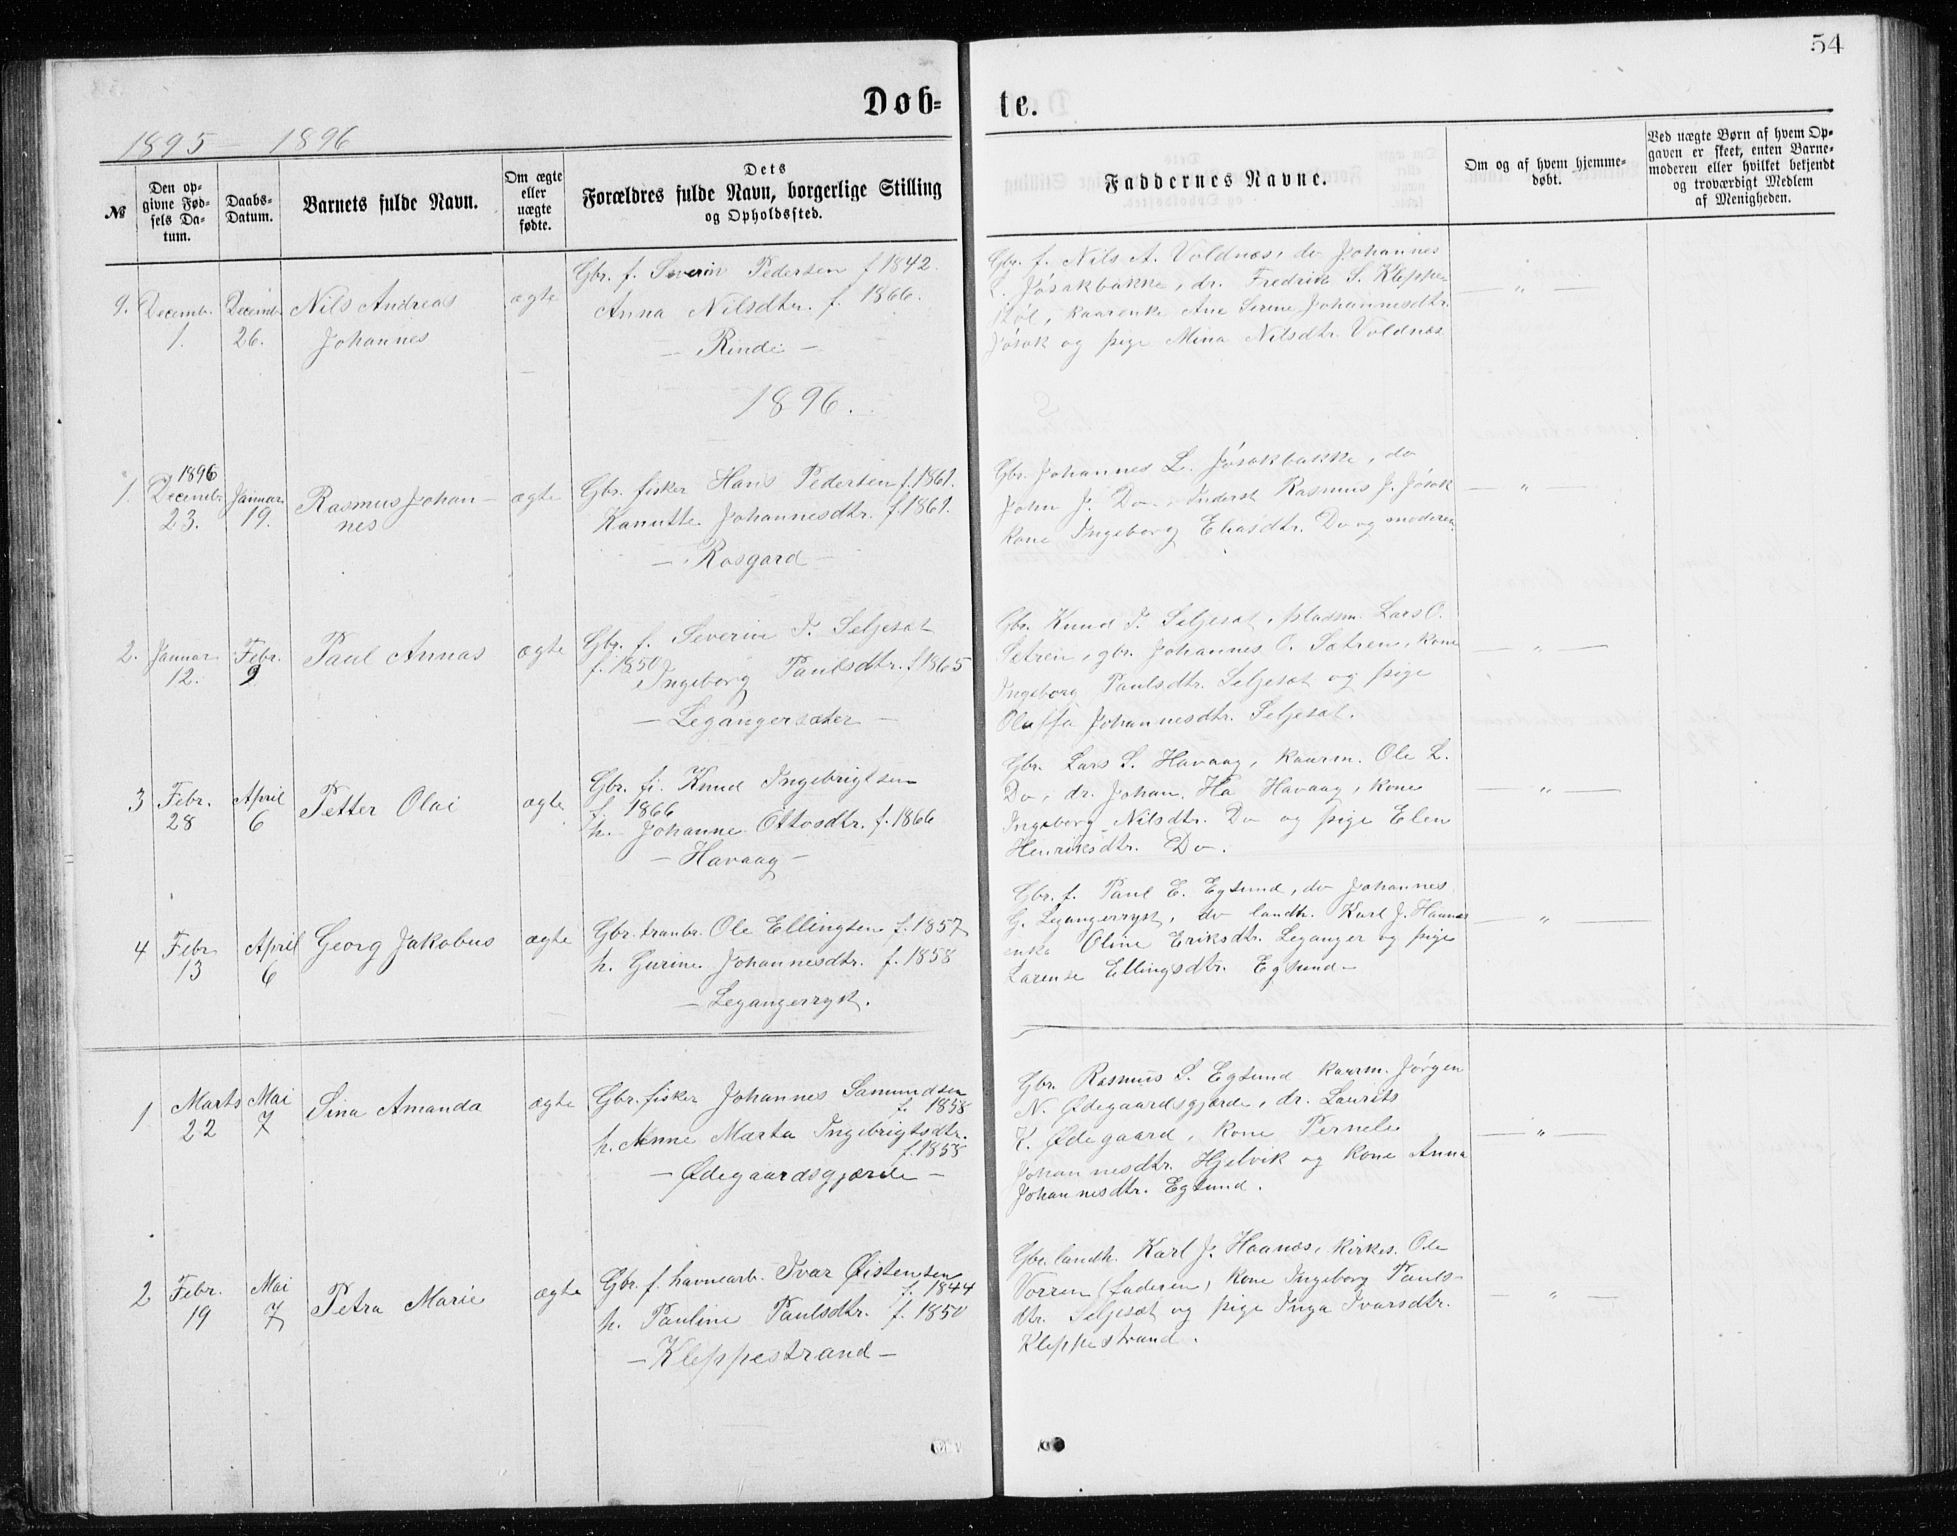 54
Døb-
te.
1895 – 1896
№
Den op-
givne Fød-
sels Da-
tum.
Daabs-
Datum.
Barnets fulde Navn.
Om ægte
eller
uægte
fødte.
Dets
Forældres fulde Navn, borgerlige Stilling
og Opholdssted.
Faddernes Navne.
Om og af hvem hjemme-
døbt.
Ved uægte Børn af hvem Op-
gaven er skeet, enten Barne-
moderen eller hvilket bekjendt
og troværdigt Medlem
af Menigheden.
9.
Decembr.
1.
Decembr
26.
Nils Andreas
Johannes
ægte
Gbr. f. Severin Pedersen f 1842.
Anna Nilsdtr. f. 1866.
– Rinde –
Gbr. f. Nils A. Voldnæs, do Johannes
L. Jøsokbakke, dr. Fredrik S. Kleppe-
støl, kaarenke Ane Serine Johannesdtr.
Jøsok og pige Mina Nilsdtr. Voldnæs
— " —
1896.
1.
1896
Decembr
23.
Januar
19.
Rasmus Johan-
nes
ægte
Gbr. fisker Hans Pedersen f. 1861.
Kanutte Johannesdtr. f. 1861.
– Rosgard –
Gbr. Johannes L. Jøsokbakke, do
John J. Do. Inderst Rasmus J. Jøsok
kone Ingeborg Eliasdtr. Do og moderen
— " —
2.
Januar
12.
Febr.
9
Paul Annas
ægte
Gbr. f. Severin J. Seljesæt
f. 1850
Ingeborg Paulsdtr. f 1865
– Legangersæter –
Gbr. Knud J. Seljesæt, pladsm. Lars O.
Sætren, gbr. Johannes O. Sætren, kone
Ingeborg Paulsdtr. Seljesæt og pige
Oluffa Johannesdtr. Seljesæt.
— " —
3
Febr.
28
April
6
Petter Olai
ægte
Gbr. fi. Knud Ingebrigtsen
f. 1866
h. Johanne Ottosdtr. f. 1866
– Havaag –
Gbr. Lars S. Havaag, kaarm. Ole L.
Do, dr. Johan Ha Havaag, kone
Ingeborg Nilsdtr. Do og pige Elen
Henriksdtr. Do.
— " —
4
Febr
13
April
6
Georg Jakobus
ægte
Gbr. tranbr. Ole Ellingsen f. 1857
h. Gurine Johannesdtr. f. 1858
– Legangerryst.
Gbr. f. Paul E. Egsund, do Johannes
G. Legangerryst, do landh. Karl J. Haanæs
enke Oline Eriksdtr. Leganger og pige
Larense Ellingsdtr. Egsund –
— " —
1
Marts
22
Mai
7
Sina Amanda
ægte
Gbr. fisker Johannes Samundsen
f. 1858
h. Anne Marta Ingebrigtsdtr.
f. 1858
– Ødegaardsgjærde –
Gbr. Rasmus S. Egsund kaarm. Jørgen
N. Ødegaardsgjærde, dr. Laurits
K. Ødegaard, kone Pernele
Johannesdtr. Hjelvik og kone Anna
Johannesdtr. Egsund.
— " —
2
Febr.
19
Mai
7
Petra Marie
ægte
Gbr. f. havnearb. Ivar Øistensen
f. 1844
h. Pauline Paulsdtr. f. 1850
– Kleppestrand –
Gbr. landh. Karl J. Haanæs, kirkes. Ole
Vorren (faderen) kone Ingeborg Pauls-
dtr. Seljesæt og pige Inga Ivarsdtr.
Kleppestrand.
— " —